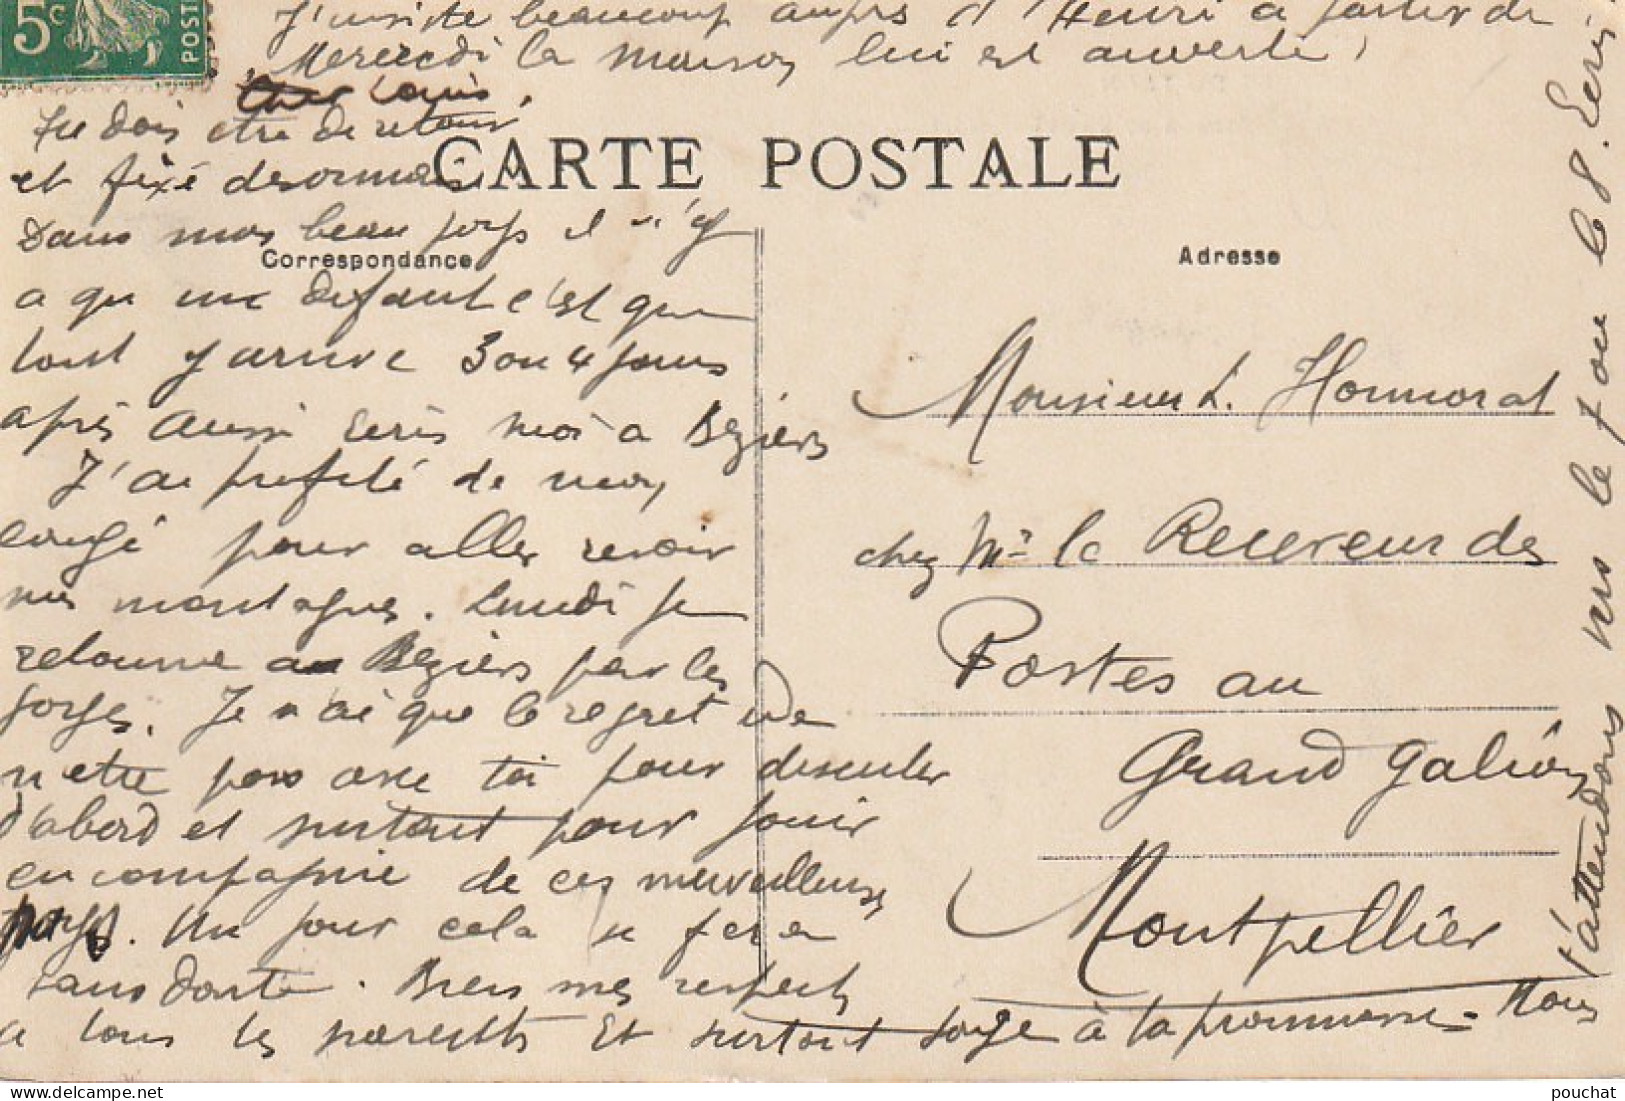 5c POST
J'insiste beaucoup auprs d'Henri a partir de
Mercredi la maison lui est ouverte.
Cher Louis,
Tu dois etre de retour
et fixé desormais
CARTE POSTALE
Dans mon beau pays il n'y
Correspondance
a qu'un defaut c'est que
tout y arrive 3 ou 4 jours
après aussi Ecris moi a Béziers
J'ai profité de mon
congé pour aller revoir
mes montagnes. Lundi je
retourne a Béziers par les
gorges. Je n'ai que le regret de
n'etre pas avec toi pour discuter
d'abord et surtout pour jouir
en compagnie de ces merveilleux
pays. Un jour cela se fera
sans doute. Biens mes respects
a tous les parents Et surtout songe à ta promesse - Nous
t'attendons vers le 7 ou le 8. Ecris
Adresse
Monsieur L. Honnorat
chez Mr le Receveur des
Postes au
Grand Galion
Montpellier
pouchat